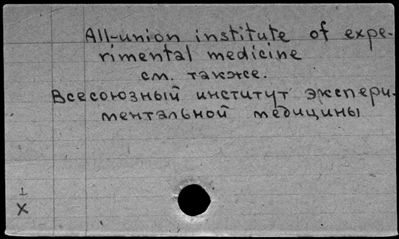 All-union institute of expe-
rimental medicine
см. также.
Всесоюзный институт экспери-
ментальной медицины
1
X